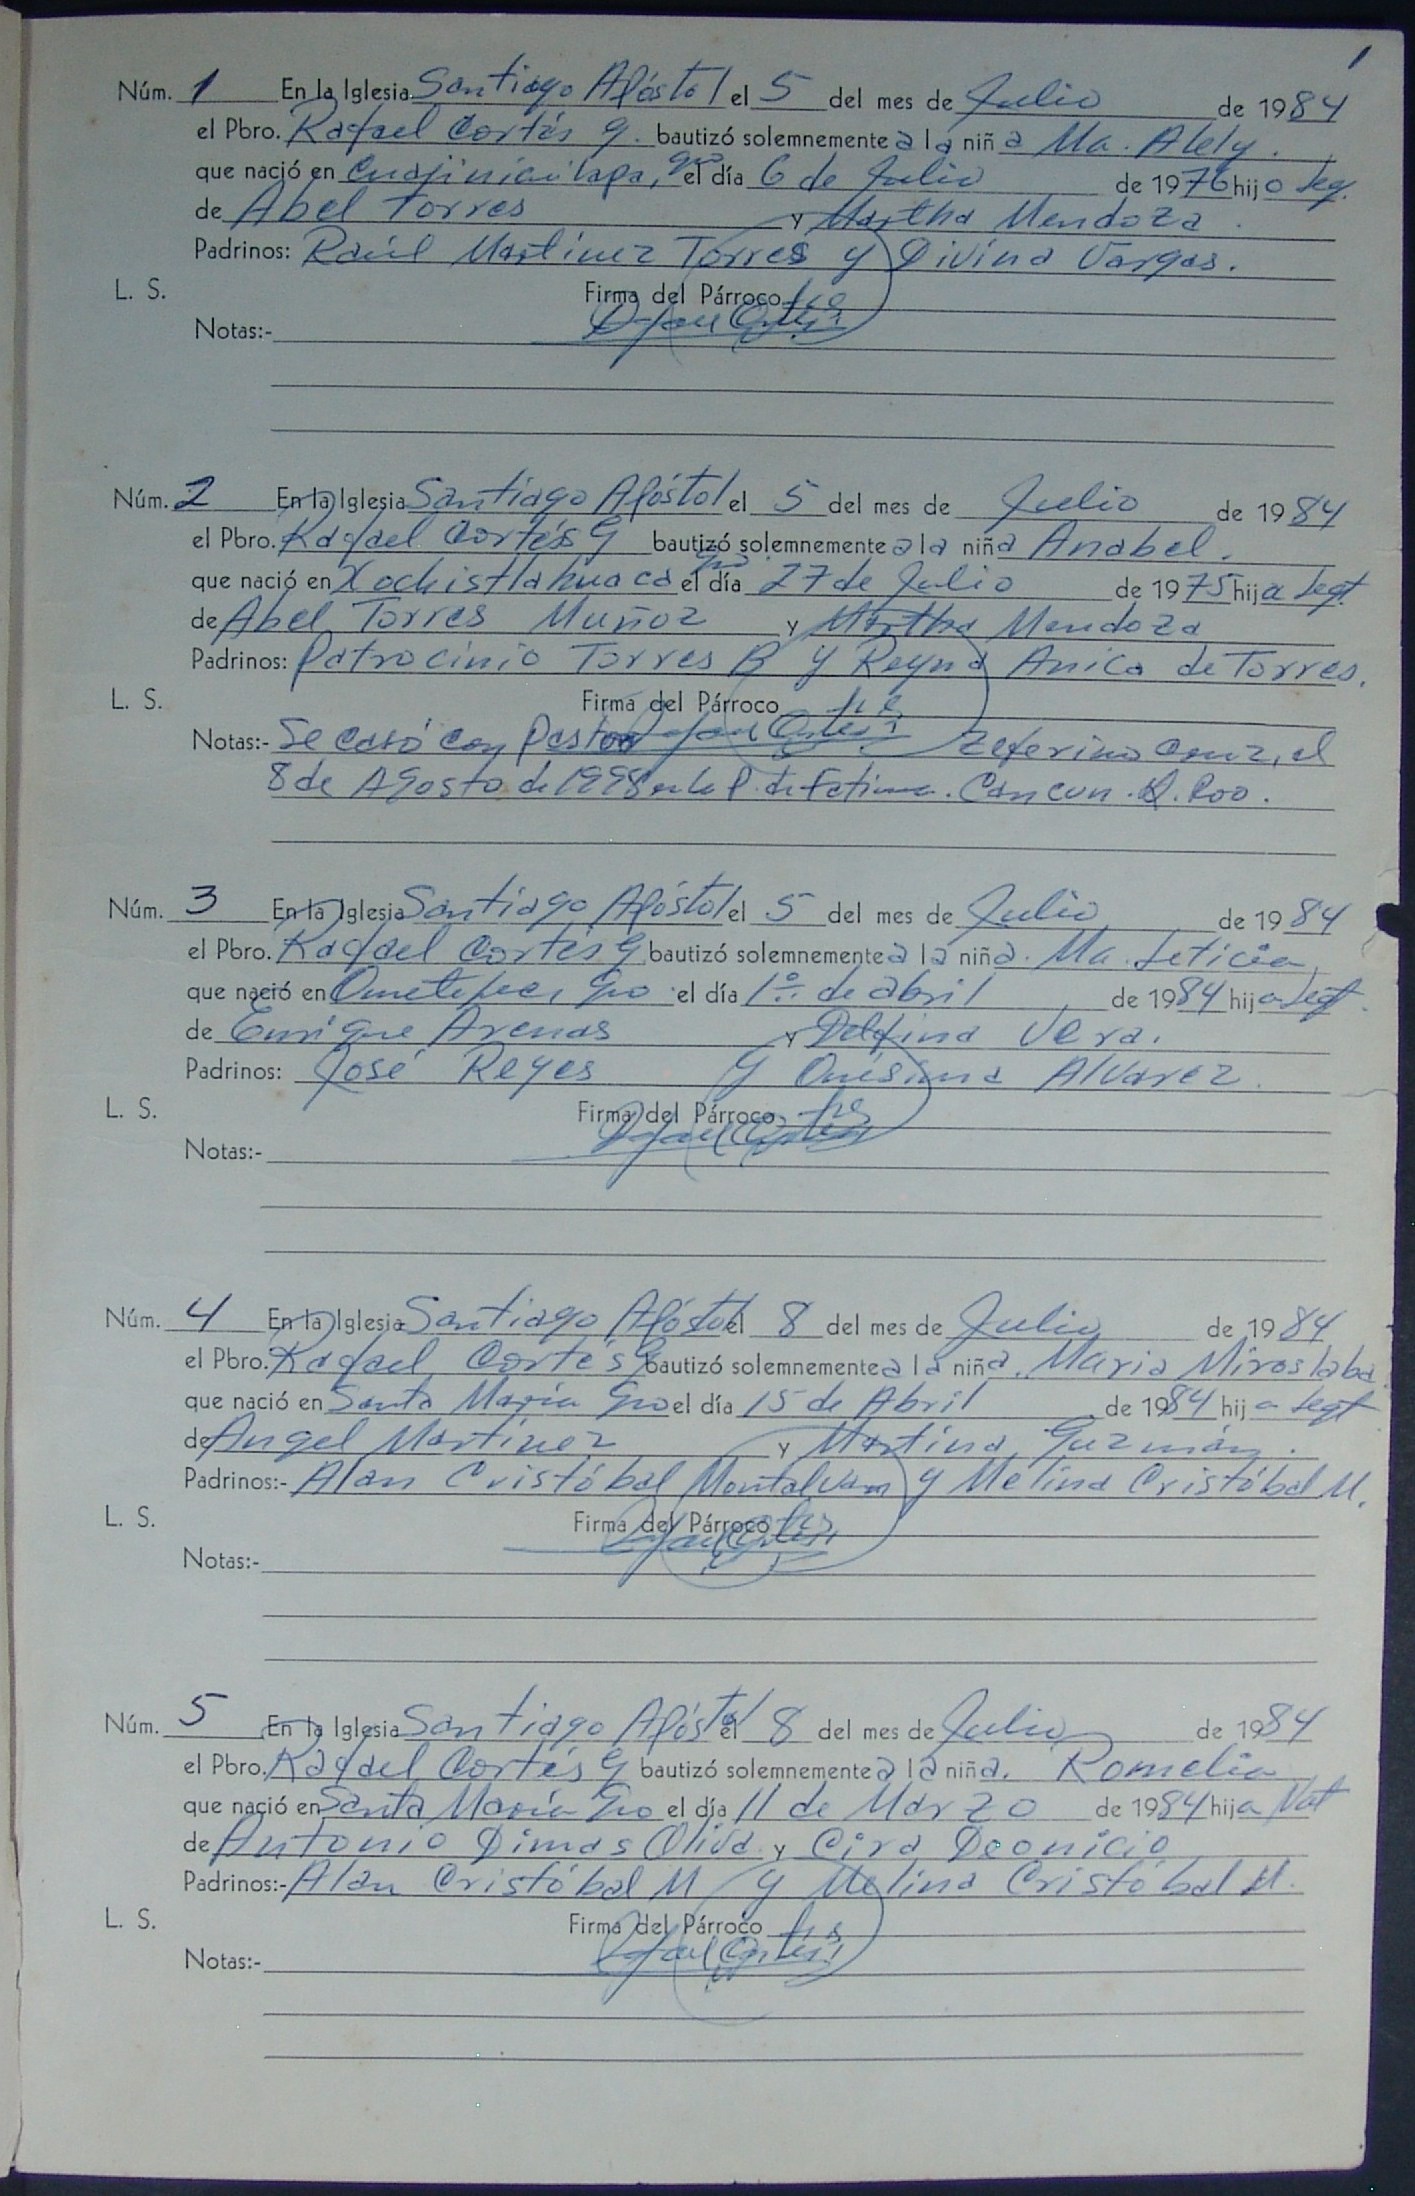 1
Núm. 1 En la Iglesia Santiago Apóstol el 5 del mes de Julio de 1984
el Pbro. Rafael Cortés G. bautizó solemnemente a la niña Ma. Alely.
que nació en Cuajinicuilapa, Gro el día 6 de Julio de 1976 hijo Leg.
de Abel Torres y Martha Mendoza.
Padrinos: Raúl Martinez Torres y Divina Vargas.
L. S. Firma del Párroco
Rafael Cortés
Notas:-
Núm. 2 En la Iglesia Santiago Apóstol el 5 del mes de Julio de 1984
el Pbro. Rafael Cortés G bautizó solemnemente a la niña Anabel.
que nació en Xochistlahuaca Gro. el día 27 de Julio de 1975 hija Legt.
de Abel Torres Muñoz y Martha Mendoza
Padrinos: Patrocinio Torres B y Reyna Anica de Torres.
L. S. Firma del Párroco
Rafael Cortés
Notas:- Se casó con Pastor Zeferino Cruz, el
8 de Agosto de 1998 en la P. de Fatima. Cancun. Q. Roo.
Núm. 3 En la Iglesia Santiago Apóstol el 5 del mes de Julio de 1984
el Pbro. Rafael Cortés G bautizó solemnemente a la niña. Ma. Leticia
que nació en Ometepec, Gro el día 1º de abril de 1984 hija Legt.
de Enrique Arenas y Delfina Vera.
Padrinos: José Reyes y Onésima Alvarez.
L. S. Firma del Párroco
Rafael Cortés
Notas:-
Núm. 4 En la Iglesia Santiago Apóstol el 8 del mes de Julio de 1984
el Pbro. Rafael Cortés G bautizó solemnemente a la niña. Maria Miroslaba.
que nació en Santa María Gro el día 15 de Abril de 1984 hija Legt
de Angel Martínez y Martina Guzmán.
Padrinos:- Alan Cristóbal Montalvan y Melina Cristóbal M.
L. S. Firma del Párroco
Rafael Cortés
Notas:-
Núm. 5 En la Iglesia Santiago Apóstol el 8 del mes de Julio de 1984
el Pbro. Rafael Cortés G bautizó solemnemente a la niña. Romelia
que nació en Santa María Gro el día 11 de Marzo de 1984 hija Nat
de Antonio Dimas Oliva y Cira Deonicio
Padrinos:- Alan Cristóbal M y Melina Cristóbal M.
L. S. Firma del Párroco
Rafael Cortés
Notas:-